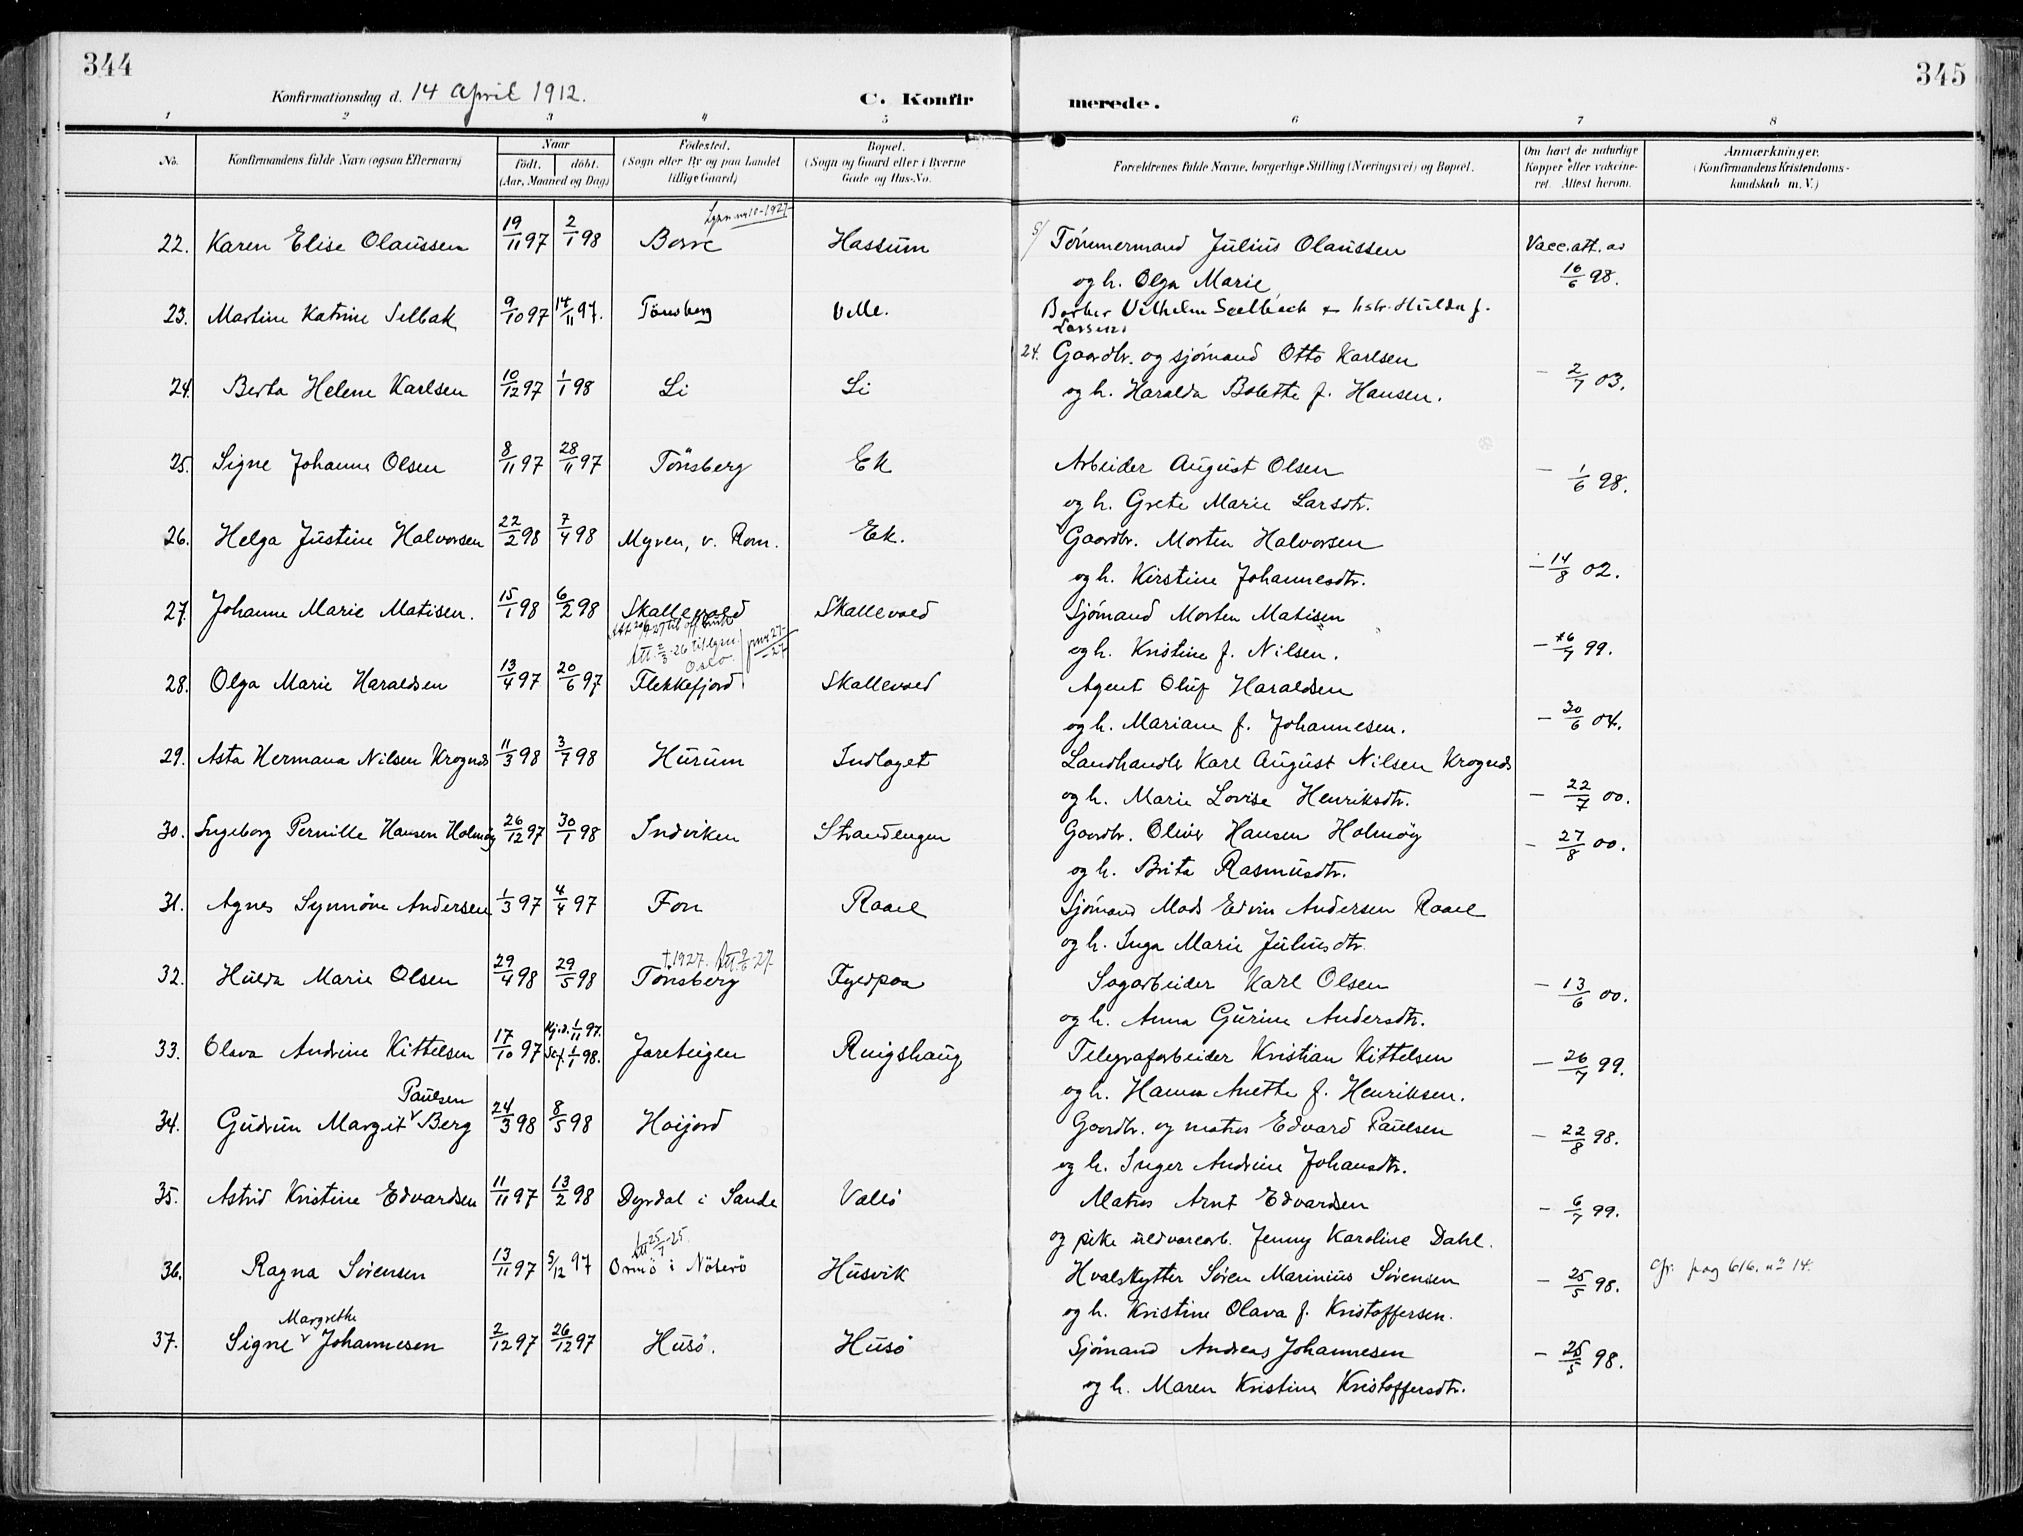 344
345
Konfirmationsdag d. 14 April 1912.
C. Konfirmerede.
1 2 3 4 5 6 7 8
No.
Konfirmandens fulde Navn (ogsaa Efternavn)
Naar
født. døbt.
(Aar, Maaned og Dag)
Fødested.
(Sogn eller By og paa Landet
tillige Gaard)
Bopæl.
(Sogn og Gaard eller i Byerne
Gade og Hus-No.
Forældrenes fulde Navne, borgerlige Stilling (Næringsvei) og Bopæl.
Om havt de naturlige
Kopper eller vakcine-
ret. Attest herom.
Anmærkninger.
(Konfirmandens Kristendoms-
kundskab m. V.)
22. Karen Elise Olaussen 19/11 97 2/1 98 Borre Hassum Tömmermand Julius Olaussen Vacc. att. av
og h. Olga Marie 16/6 98.
23. Martine Katrine Selbak 9/10 97 14/11 97. Tönsberg Barber Vilhelm Seelback & hstr. Hulda f.
Larsen
24. Gaardbr. og sjömand Otto Karlsen
24. Berta Helene Karlsen 10/12 97 1/1 98 Li Li og h. Haralda Bolette f. Hansen. - 2/7 03.
25. Signe Johanne Olsen 8/11 97 28/11 97 Tönsberg Ek Arbeider August Olsen - 1/6 98.
og h. Grete Marie Larsdtr.
26. Helga Justine Halvorsen 22/2 98 7/4 98 Myren, v. Rom. Ek. Gaardbr. Morten Halvorsen
og h. Kirstine Johannesdtr. - 14/8 02.
27. Johanne Marie Matisen. 15/1 98 6/2 98 Skallevold Skallevold Sjömand Morten Matisen
og h. Kristine f. Nilsen. - 16/7 99.
Oslo.
28. Olga Marie Haraldsen 13/4 97 20/6 97 Flekkefjord Skallevold Agent Oluf Haraldsen
og h. Mariane f. Johannesen. - 30/6 04.
29. Asta Hermana Nilsen Krognes 11/3 98 3/7 98 Hurum Indlaget Landhandler Karl August Nilsen Krognes
og h. Marie Lovise Henriksdtr. - 22/7 00.
30. Ingeborg Pernille Hansen Holmöy 26/12 97 30/1 98 Indviken Strandengen Gaardbr. Oliver Hansen Holmöy - 27/8 00.
og h. Brita Rasmusdtr.
31. Agnes Synnöve Andersen 1/3 97 4/4 97 Fon Raael Sjömand Mads Edvin Andersen Raael
og h. Inga Marie Juliusdtr.
† 1927. Att. 2/6-27
32. Hulda Marie Olsen 29/4 98 29/5 98 Tönsberg Fyldpaa Sagarbeider Karl Olsen - 13/6 00.
og h. Anna Gurine Andersdtr.
33. Olava Andrine Kittelsen 17/10 97 Hj. d. 1/11 97. 1/1 98. Jareteigen Ringshaug Telegrafarbeider Kristian Kittelsen - 26/7 99.
og h. Hanna Anette f. Henriksen.
Paulsen
34. Gudrun Margit v Berg 24/3 98 8/5 98 Höijord Gaardbr. og matros Edvard Paulsen - 22/8 98.
og h. Inger Andrine Johansdtr.
35. Astrid Kristine Edvardsen 11/11 97 13/2 98 Dyrdal i Sande Vallö Matros Arnt Edvardsen - 6/7 99.
og pike uldvarearb. Jenny Karoline Dahl.
Att 25/7-25.
36. Ragna Sörensen 13/11 97 5/12 97 Ormö i Nöterö Husvik Hvalskytter Sören Marinius Sörensen - 25/5 98. Cfr. pag 616. no 14.
og h. Kristine Olava f. Kristoffersen.
Margrethe
37. Signe v Johannesen 2/12 97 26/12 97 Husö. Husö Sjömand Andreas Johannesen - 25/5 98.
og h. Maren Kristine Kristoffersdtr.